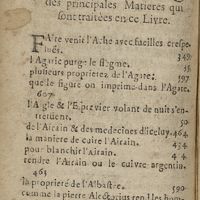 des principales Matieres qui
sont traitées en ce Livre.
FAire venir l'Ache avec fueilles crespe-
lues. 349.
l'Agaric purge le flegme. 55.
plusieurs proprietez de l'Agate. 597
que le figure on imprime dans l'Agate.
607
l'Aigle & l'Epervier volant de nuit s'en-
tretuent. 50
de l'Airain & des medecines d'iceluy. 464.
la maniere de cuire l'Airain. 434
pour blanchir l'Airain. 4
rendre l'Airain ou le cuivre argentin.
463
la propriété de l'Albastre. 590
comme la pierre Alectorius rend les hom-